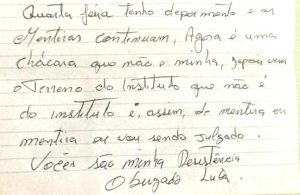 Quarta feira tenho depoimento e as
Mentiras continuam, Agora é uma
chácara que não é minha, depois vem
o Terreno do Instituto que não é
do instituto é, assim, de mentira em
mentira as vou sendo julgado.
Vocês são minha Resistência
Obrigado Lula.